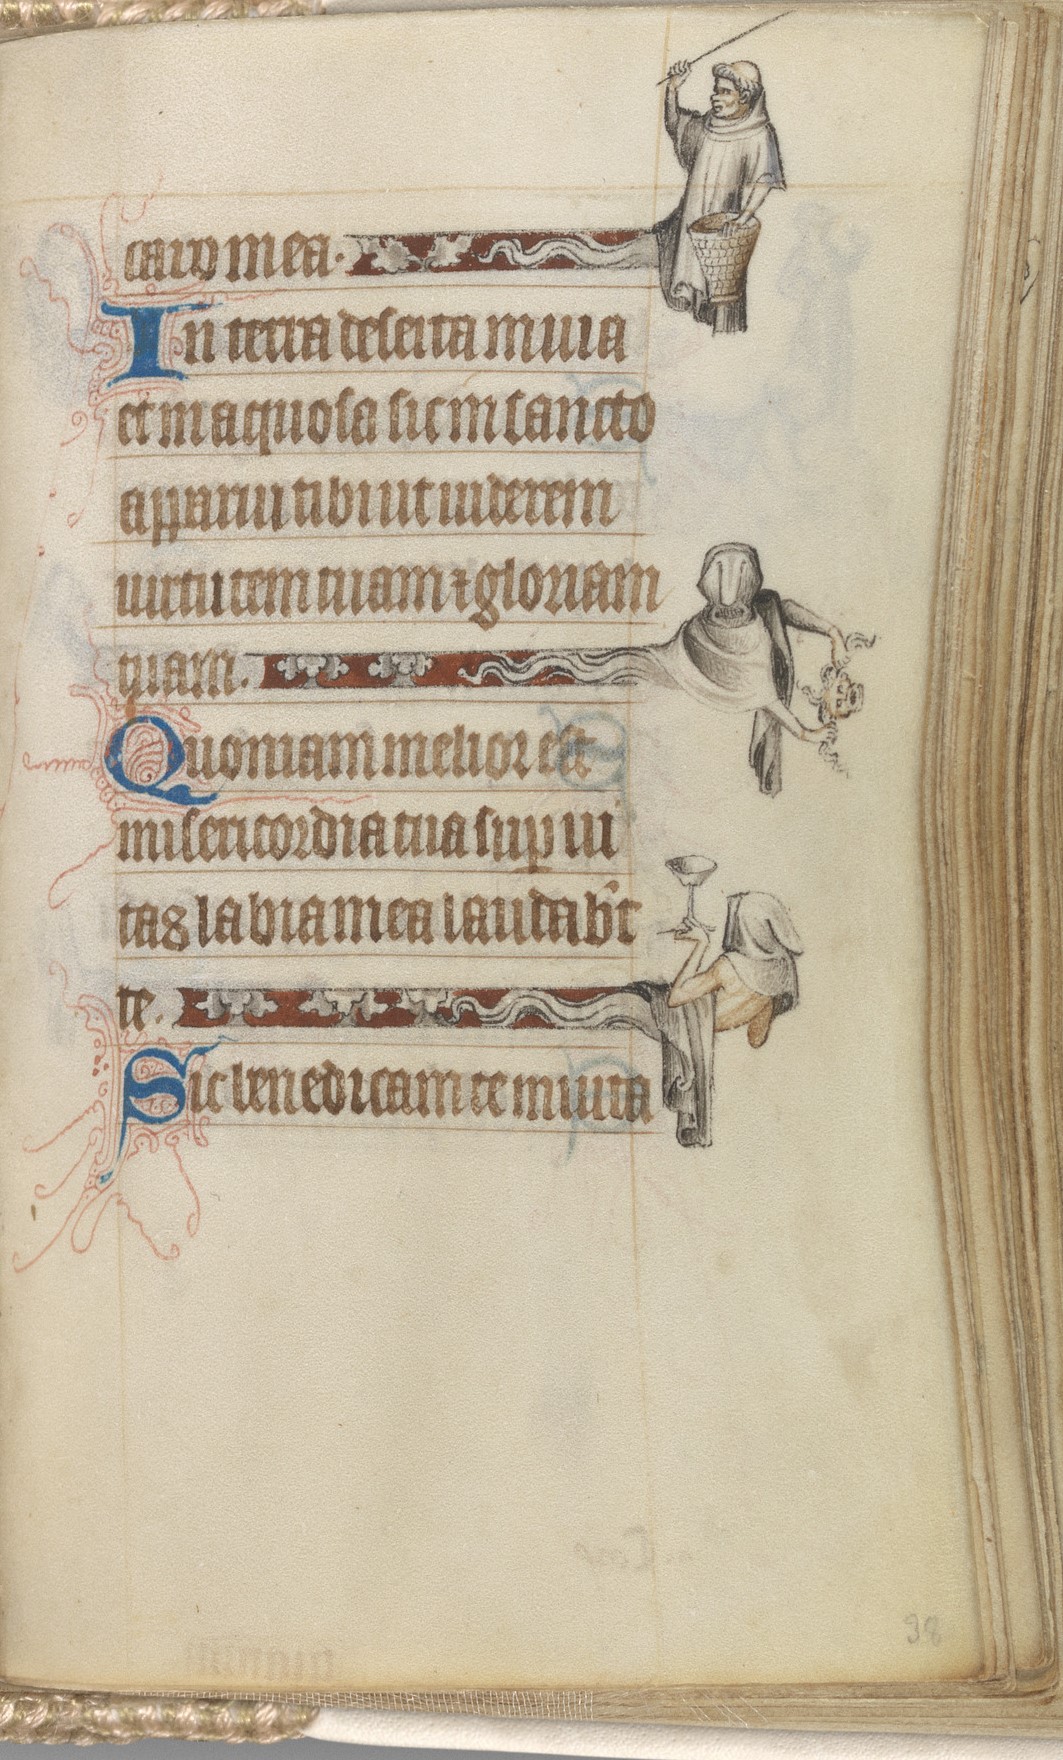 caro mea.
In terra deserta inuia
et inaquosa sic in sancto
apparui tibi ut uiderem
uirtutem tuam ⁊ gloriam
tuam.
Quoniam melior est
misericordia tua sup ui
tas labia mea laudab̃t
te.
Sic benedicam te in uita
38